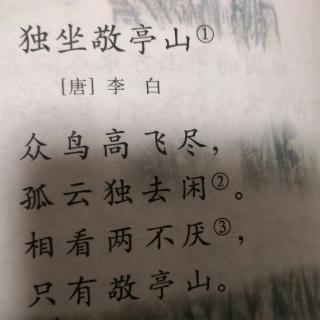 独坐敬亭山①
[唐] 李 白
众鸟高飞尽，
孤云独去闲②。
相看两不厌③，
只有敬亭山。